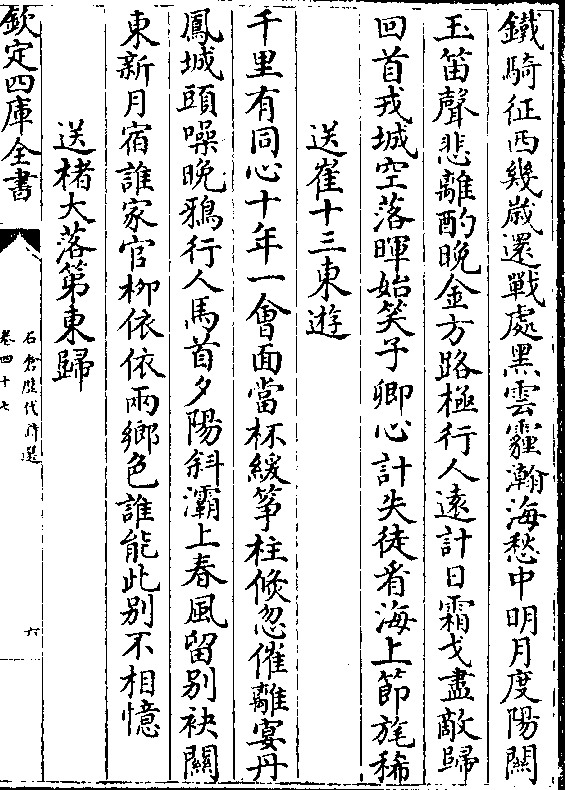 鐵騎征西幾歲還戰處黑雲霾瀚海愁中明月度陽關
玉笛聲悲離酌晚金方路極行人遠計日霜戈盡敵歸
回首戎城空落暉始笑子卿心計失徒看海上節旄稀
送崔十三東遊
千里有同心十年一會面當杯緩箏柱倐忽催離宴丹
鳳城頭噪晚鴉行人馬首夕陽斜灞上春風留别袂關
東新月宿誰家官柳依依兩鄉色誰能此别不相憶
送楮大落第東歸
欽定四庫全書
石倉歷代詩選
卷四十七
六